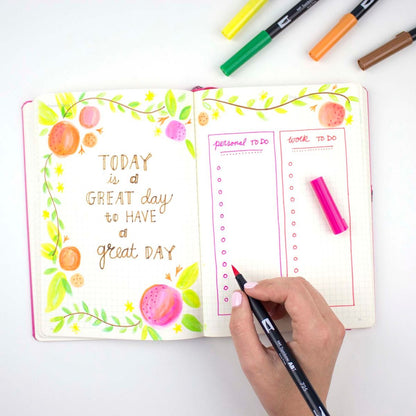 TODAY
is a
GREAT day
to HAVE
a
great DAY
personal TO DO
work TO DO